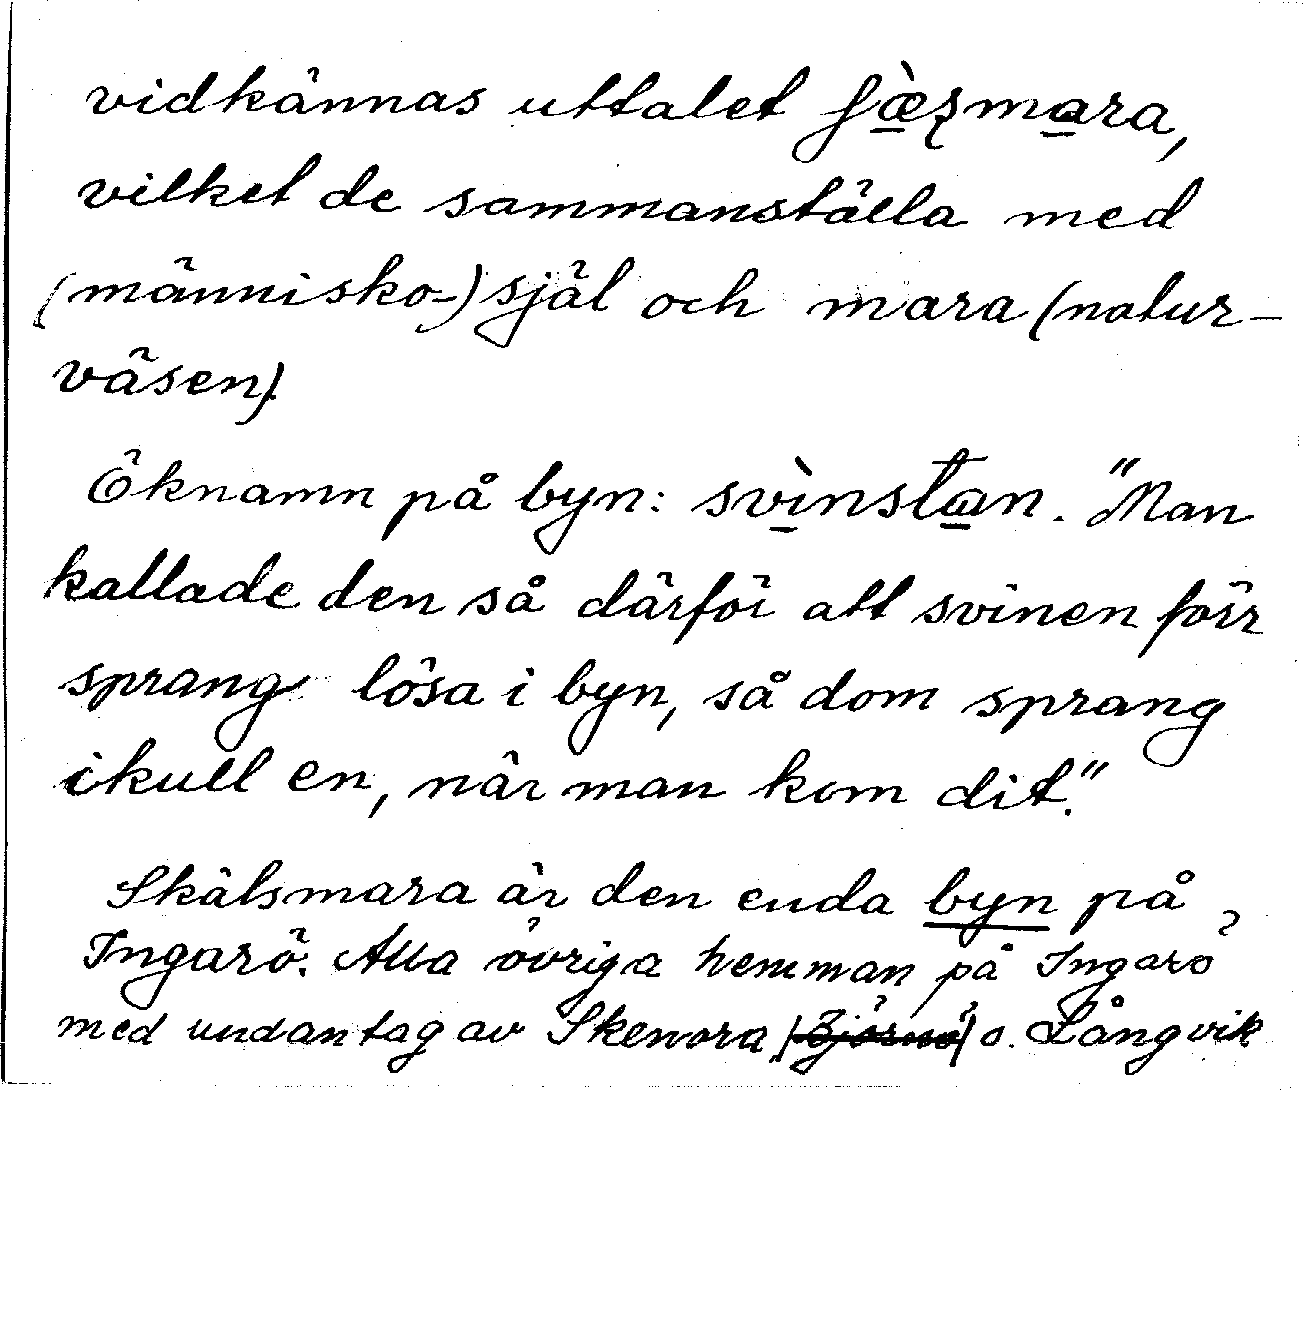 vidkännas uttalet ʃæ̀ʂmara,
vilket de sammanställa med
(människo-)själ och mara (natur-
väsen).
Öknamn på byn: svìnstan. "Man
kallade den så därför att svinen förr
sprang lösa i byn, så dom sprang
ikull en, när man kom dit."
Skälsmara är den enda byn på
Ingarö. Alla övriga hemman på Ingarö
med undantag av Skenora, (Björnö) o. Långvik